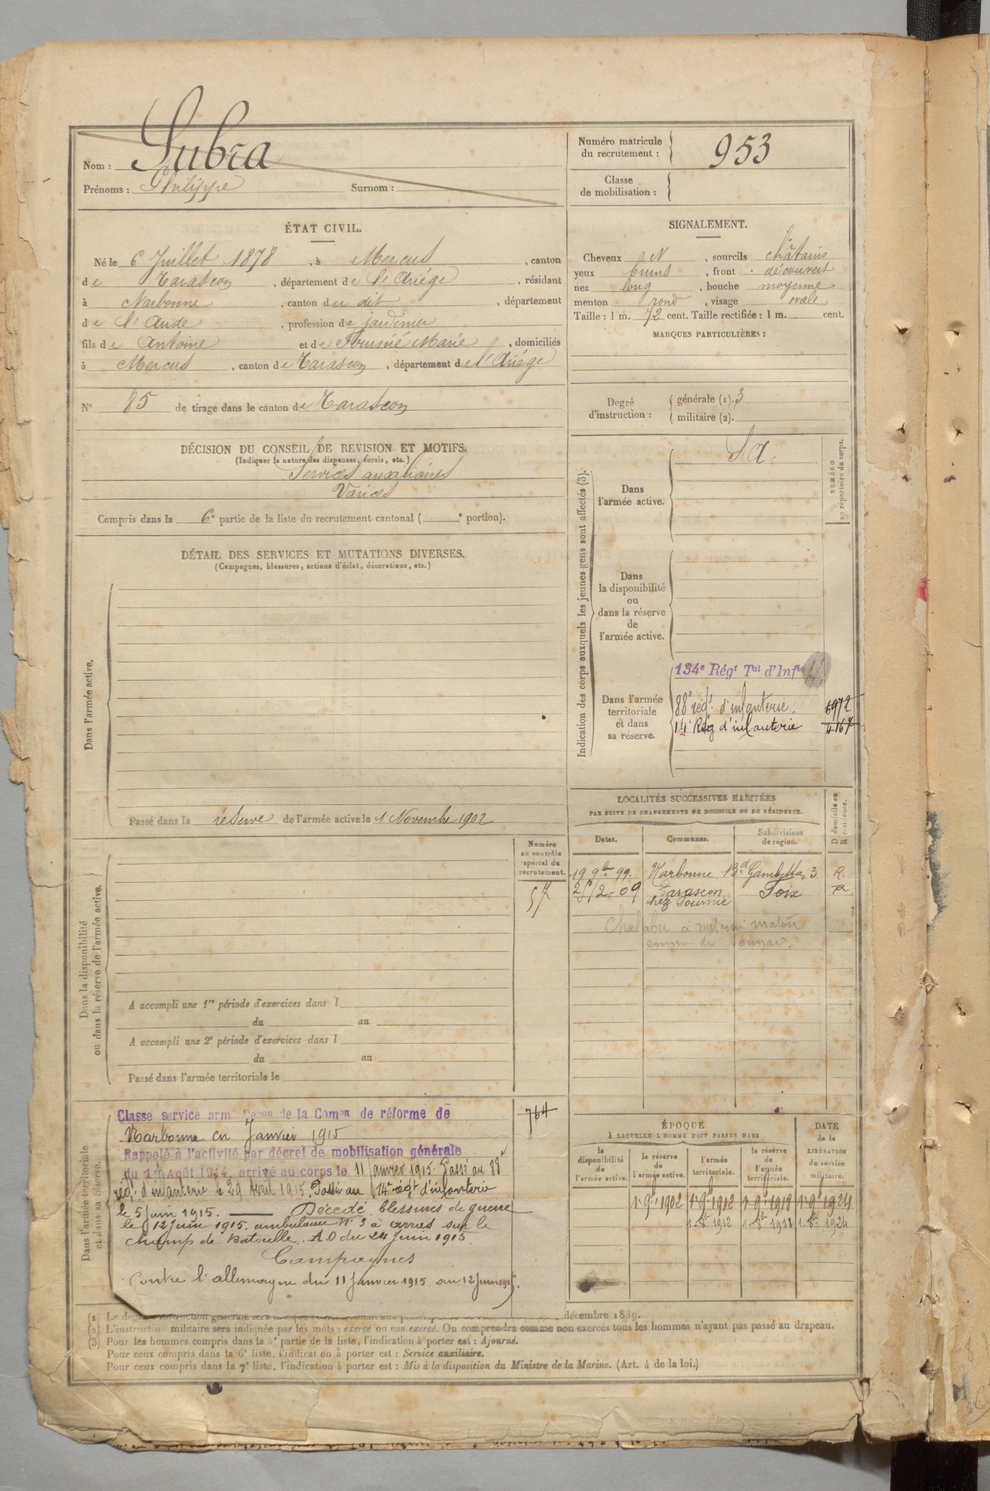 Nom : Subra
Prénoms : Philippe Surnom :
Numéro matricule du recrutement : 953
Classe de mobilisation :
ÉTAT CIVIL.
Né le 6 Juillet 1878, à Mercus, canton
de Tarascon, département de l'Ariége, résidant
à Narbonne, canton du dit, département
de l'Aude, profession de jardinier
fils de Antoine et de Marie, domiciliés
à Mercus, canton de Tarascon, département de l'Ariége
N° 85 de tirage dans le canton de Tarascon
DÉCISION DU CONSEIL DE REVISION ET MOTIFS.
(Indiquer la nature des dispenses, sursis, etc.)
Services auxiliaires
Varices
Compris dans la 6e partie de la liste du recrutement cantonal ( e portion).
DÉTAIL DES SERVICES ET MUTATIONS DIVERSES.
(Campagnes, blessures, actions d'éclat, décorations, etc.)
Dans l'armée active.
Passé dans la réserve de l'armée active le 1 Novembre 1902
Dans la disponibilité
ou dans la réserve de l'armée active.
Numéro
au contrôle
spécial du
recrutement.
57
A accompli une 1re période d'exercices dans l
du au
A accompli une 2e période d'exercices dans l
du au
Passé dans l'armée territoriale le
764
Dans l'armée territoriale
et dans sa réserve.
Classé service armé de la Comon de réforme de
Narbonne en Janvier 1915
Rappelé à l'activité par décret de mobilisation générale
du 1er Août 1914, arrivé au corps le 11 janvier 1915. Passé au 88e
régt d'infanterie le 29 Avril 1915. Passé au 14e régt d'infanterie
le 5 juin 1915. Décédé, blessures de guerre
le 12 juin 1915 ambulance N° 3 à sur le
champ de bataille. A.O du 24 juin 1915.
Campagnes
Contre l'allemagne du 11 Janvier 1915 au 12 juin 1915.
SIGNALEMENT.
Cheveux N, sourcils châtains
yeux bruns, front découvert
nez long, bouche moyenne
menton rond, visage ovale
Taille : 1 m. 72 cent. Taille rectifiée : 1 m. cent.
MARQUES PARTICULIÈRES :
Degré d'instruction : générale (1). 3
militaire (2).
Indication des corps auxquels les jeunes gens sont affectés (3).
NUMÉRO
au répertoire du corps.
Dans
l'armée active.
S a.
Dans
la disponibilité
ou
dans la réserve
de
l'armée active.
Dans l'armée
territoriale
et dans
sa réserve.
134e Régt Tal d'Infie
88e régt d'infanterie. 6972
14e Rég d'infanterie
LOCALITÉS SUCCESSIVES HABITÉES
PAR SUITE DE CHANGEMENTS DE DOMICILE OU DE RÉSIDENCE.
Dates. Communes. Subdivisions de région. D domicile ou R résidence.
19 9bre 99. Narbonne Bd Gambetta, 3 R.
25/2-09 Tarascon Foix
ÉPOQUE
À LAQUELLE L'HOMME DOIT PASSER DANS
DATE
de la
LIBÉRATION
du service
militaire.
la disponibilité de l'armée active.
la réserve de l'armée active.
l'armée territoriale.
la réserve de l'armée territoriale.
1r 9bre 1902 1r 9bre 1912 1r 9bre 1918 1r 9bre 1924
1 8bre 1912 1 8bre 1918 1 8bre 1924
décembre 1889.
(2) L'instruction militaire sera indiquée par les mots : exercé ou non exercé. On comprendra comme non exercés tous les hommes n'ayant pas passé au drapeau.
(3) Pour les hommes compris dans la 5e partie de la liste, l'indication à porter est : Ajourné.
Pour ceux compris dans la 6e liste, l'indication à porter est : Service auxiliaire.
Pour ceux compris dans la 7e liste, l'indication à porter est : Mis à la disposition du Ministre de la Marine. (Art. 4 de la loi.)